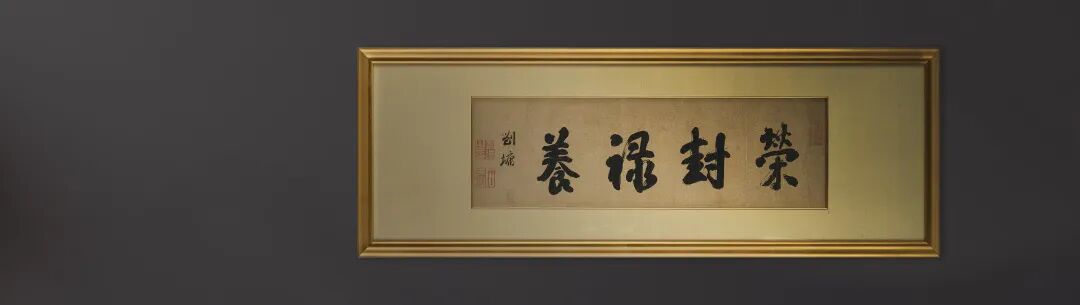 榮封禄養
劉墉